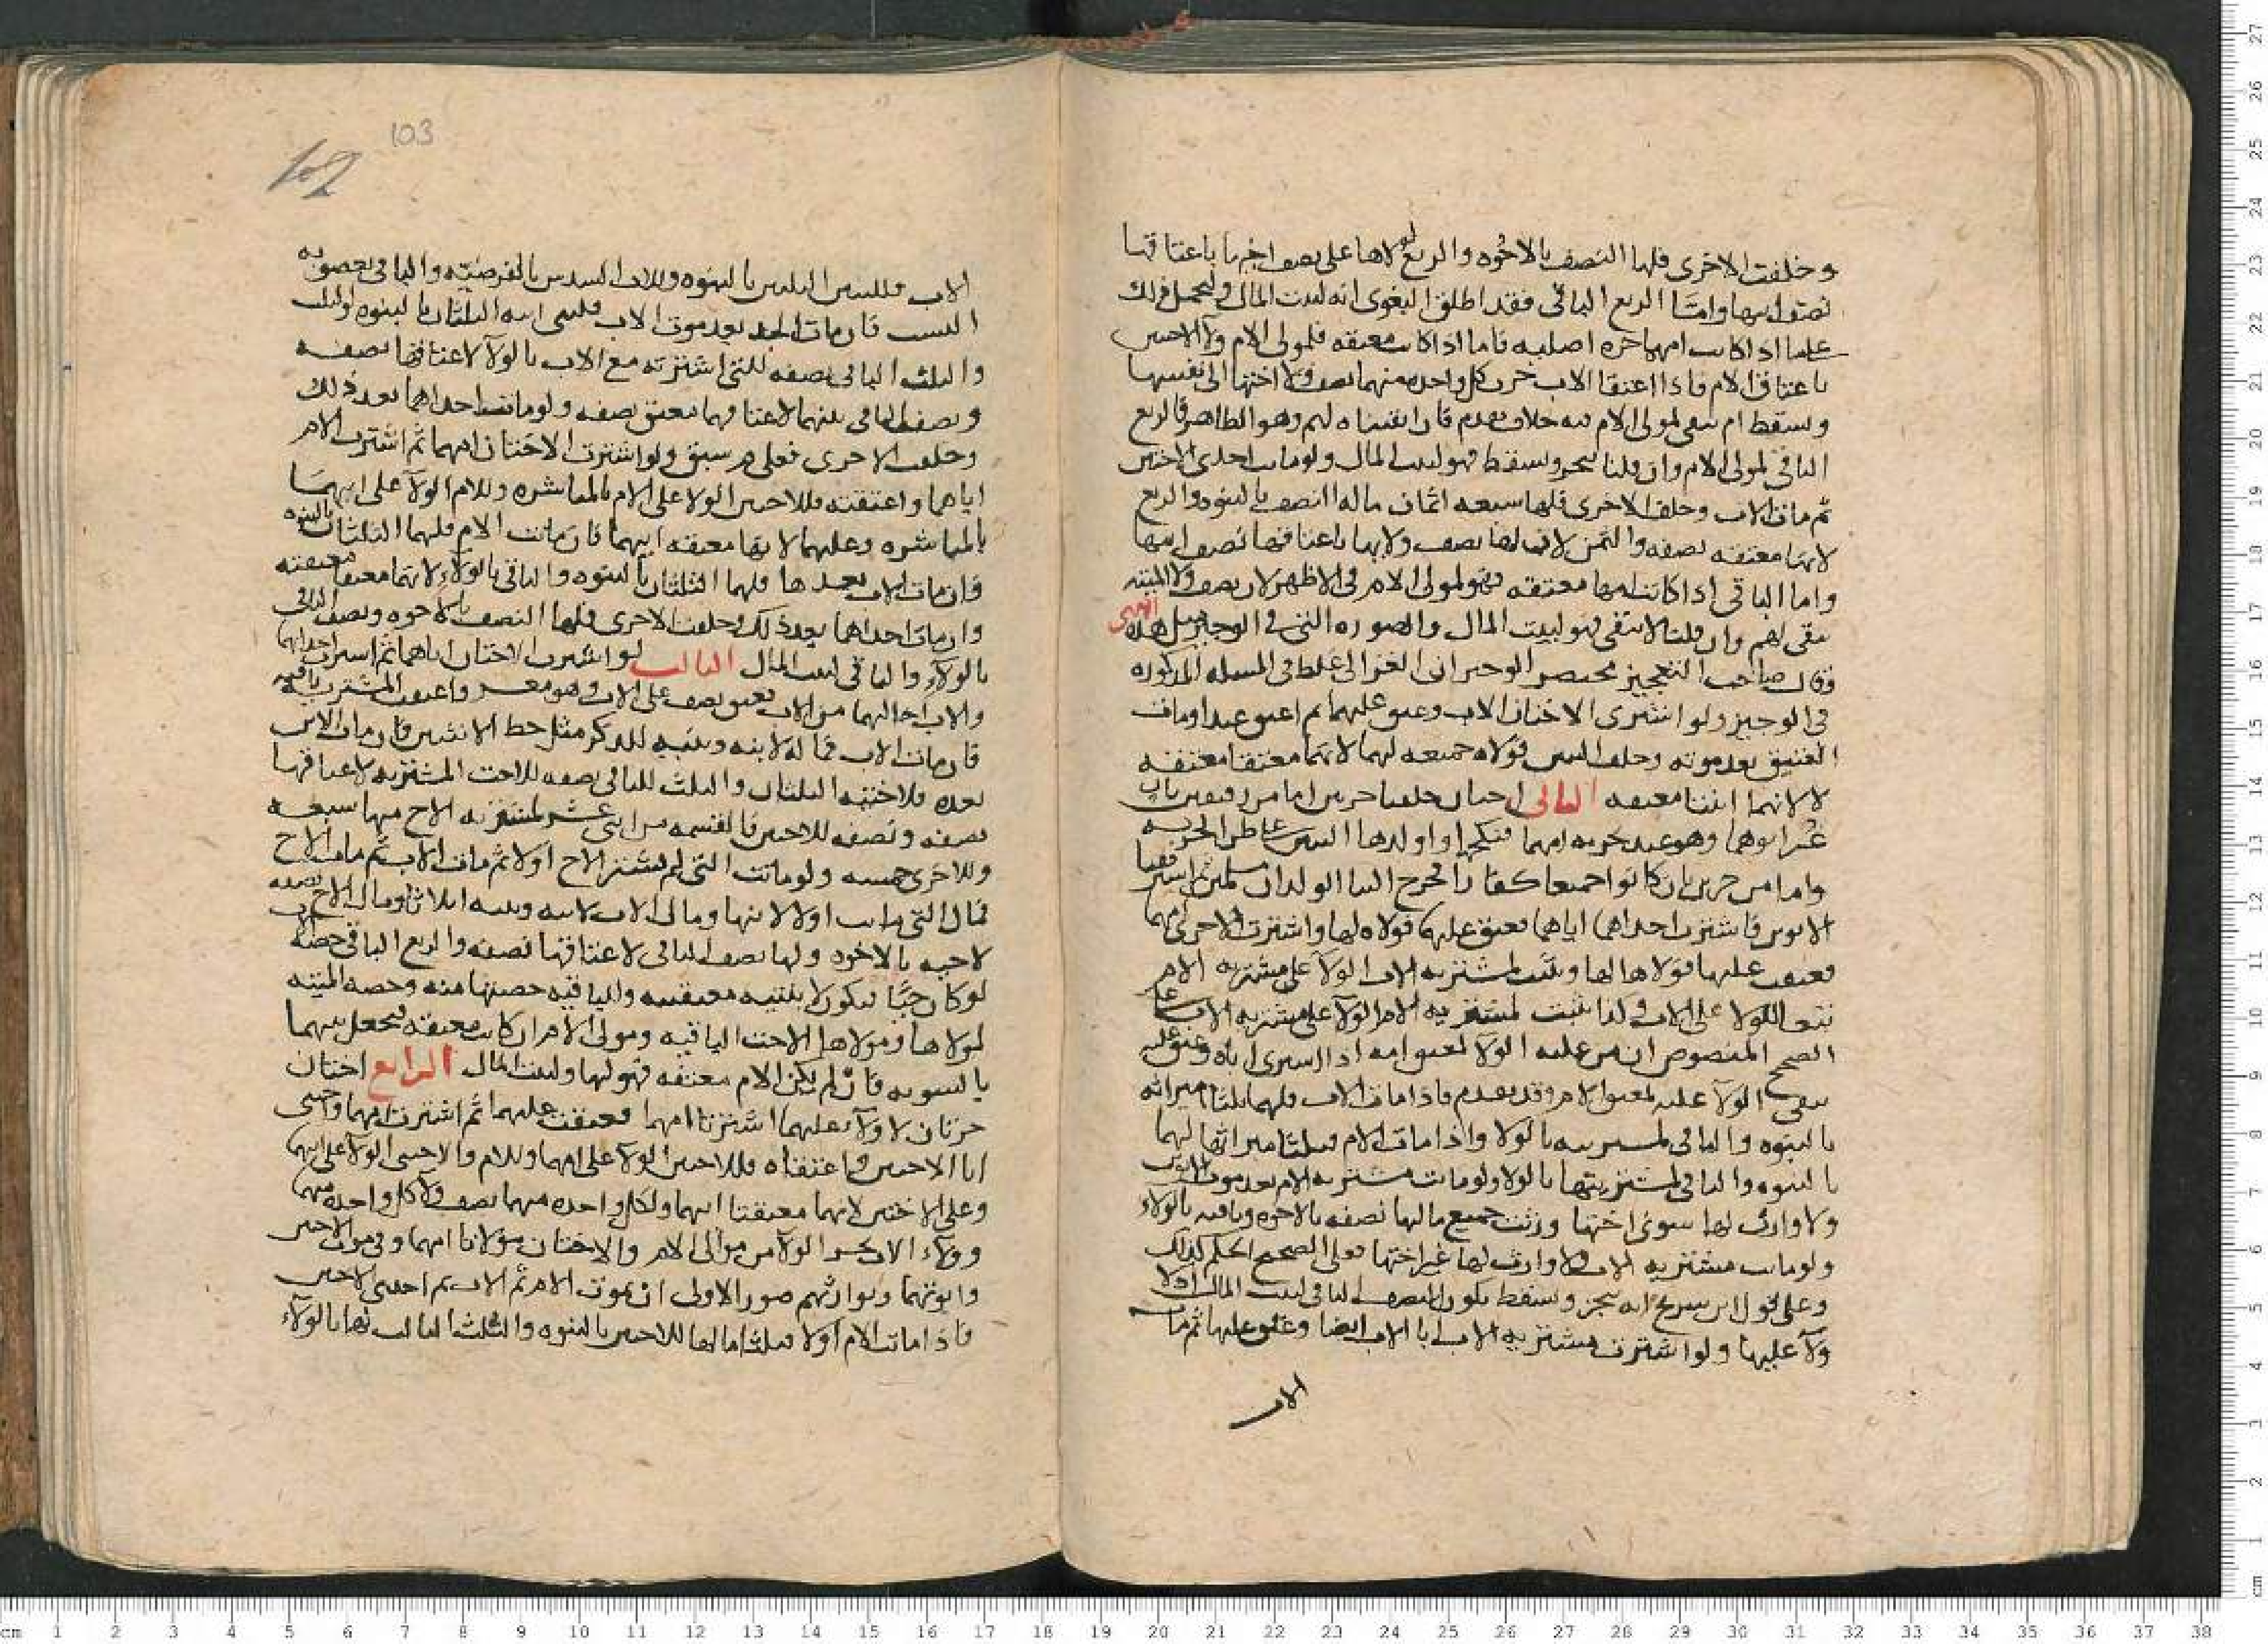 وخلفت الاخرى فلها النصف بالاخوه والربع لولاها على نصف اختها باعتاقها
نصف ابيها واما الربع الباقي فقد اطلق البغوى انه لبيت المال وليحمل ذلك
على ما اذا كانت امهما حره اصليه فاما اذا كانت معتقه فلمولى الام ولا الاختين
باعتاق الام فاذا اعتقا الاب جر كل واحده منهما نصف ولا اختها الى نفسها
وسقط ام يبقى لمولى الام فيه خلاف تقدم فان ابقيناه لهم وهو الظاهر فالربع
الباقي لمولى الام وان قلنا ينجر ويسقط فهو لبيت المال ولو مات احدى الاختين
ثم مات الاب وخلف الاخرى فلها سبعه اثمان ماله النصف بالبنوه والربع
لانها معتقه نصفه والثمن لان لها نصف ولايها باعتاقها نصف ابيها
واما الباقي اذا كانت امها معتقه فهو لمولى الام في الاظهر لان نصف ولا الميته
يبقى لهم وان قلنا لا يبقى فهو لبيت المال والصوره التي في الوجيز مثل هذه
وقال صاحب التعجيز مختصر الوجيز ان الغزالى غلط في المسله المذكوره
في الوجيز ولو اشترى الاختان الاب وعتق عليهما ثم اعتق عبدا ومات
العتيق بعد موته وخلف البنتين فولاه جميعه لهما لانهما معتقا معتقه
لا لانهما ابنتا معتقه الثانى اختان خلقتا حرتين اما من رقيقين بان
غر ابوهما وهو عبد بحريه امهما فنكحها واولدها البنتين على ظن الحريه
واما من حرين بان كانوا جميعا كفارا فخرج الينا الولدان مسلمين ثم استرقا
الابوين فاشترت احداهما اباهما فعتق عليها فولاه لها واشترت الاخرى امهما
فعتقت عليها فولاها لها ويثبت لمشتريه الاب الولا على مشتريه الام
تبعا للولا على الاب ولذا يثبت لمشتريه الام الولا على مشتريه الاب على
الصحيح المنصوص ان من عليه الولا لمعتق امه اذا اشترى اباه وعتق عليه
يبقى الولا عليه لمعتق الام وقد تقدم فاذا مات الاب فلهما ثلثا ميراثه
بالبنوه والباقي لمشتريته بالولا واذا ماتت الام فثلثا ميراثها لهما
بالبنوه والباقي لمشتريتها بالولا ولو ماتت مشتريه الام بعد موت الابوين
ولا وارث لها سوى اختها ورثت جميع مالها نصفه بالاخوه وباقيه بالولاء
ولو ماتت مشتريه الاب ولا وارث لها غير اختها فعلى الصحيح الحكم كذلك
وعلى قول ابن سريج انه ينجر ويسقط يكون النصف الباقي لبيت المال اذ لا
ولا عليها ولو اشترت مشتريه الاب ابا الاب ايضا وعتق عليها ثم مات
الاب
103
102
الاب فللبنتين الثلثين بالبنوه وللاب السدس بالفرضيه والباقي بعصوبه
النسب فان مات الجد بعد موت الاب فلبنتى ابنه الثلثان بالبنوه
والثلث الباقي نصفه للتى اشترته مع الاب بالولا لاعتاقها نصفه
ونصف الباقي بينهما لاعتاقهما معتق نصفه ولو ماتت احداهما بعد ذلك
وخلفت الاخرى فعلى ما سبق ولو اشترت الاختان امهما ثم اشترت الام
اباهما واعتقته فللاختين الولا على الام بالمباشره وللام الولا على ابيهما
بالمباشره وعليهما لانها معتقه ابيهما فان ماتت الام فلهما الثلثان بالبنوه
فان مات الاب بعدها فلهما الثلثان بالبنوه والباقي بالولاء لانهما معتقا معتقته
وان ماتت احداهما بعد ذلك وخلفت الاخرى فلها النصف بالاخوه ونصف الباقي
بالولاء والباقي لبيت المال الثالث لو اشترت الاختان اباهما ثم اشترت احداهما
والاب اخا لهما من الاب فعتق نصفه على الاب وهو معسر واعتقت المشتريه باقيه
فان مات الاب فماله لابنه وبنتيه للذكر مثل حظ الانثيين فان مات الابن
بعده فلاختيه الثلثان والثلث الباقي نصفه للاخت المشتريه لاعتاقها
نصفه ونصفه للاختين فالقسمه من اثنى عشر لمشتريه الاخ منها سبعه
وللاخرى خمسه ولو ماتت التى لم تشتر الاخ اولا ثم مات الاب ثم مات الاخ
فمال التى ماتت اولا لابيها ومال الاب لابنه وبنته اثلاثا ومال الاخ نصفه
لاخته بالاخوه ولها نصف الباقي لاعتاقها نصفه والربع الباقي حصه الاب
لو كان حيا فيكون لابنتيه معتقتيه والباقيه حصتها منه وحصه الميته
لمولاها ومولاها الاخت الباقيه ومولى الام ان كانت معتقه فيجعل بينهما
بالسويه فان لم تكن الام معتقه فهو لها ولبيت المال الرابع اختان
حرتان لا ولاء عليهما اشترتا امهما فعتقت عليهما ثم اشترت امهما واجنبى
ابا الاختين فاعتقاه فللاختين الولا على امهما وللام والاجنبى الولا على ابيهما
وعلى الاختين لانهما معتقتا ابيهما ولكل واحده منهما نصف ولا كل واحده منهما
وولاء الاب يجر الولا من موالى الام والاختان مولاتا امهما وفي موت الاختين
وابويهما وتوارثهم صور الاولى ان تموت الام ثم الاب ثم احدى الاختين
فاذا ماتت الام اولا فثلثا مالها للاختين بالبنوه والثلث الثالث لهما بالولاء